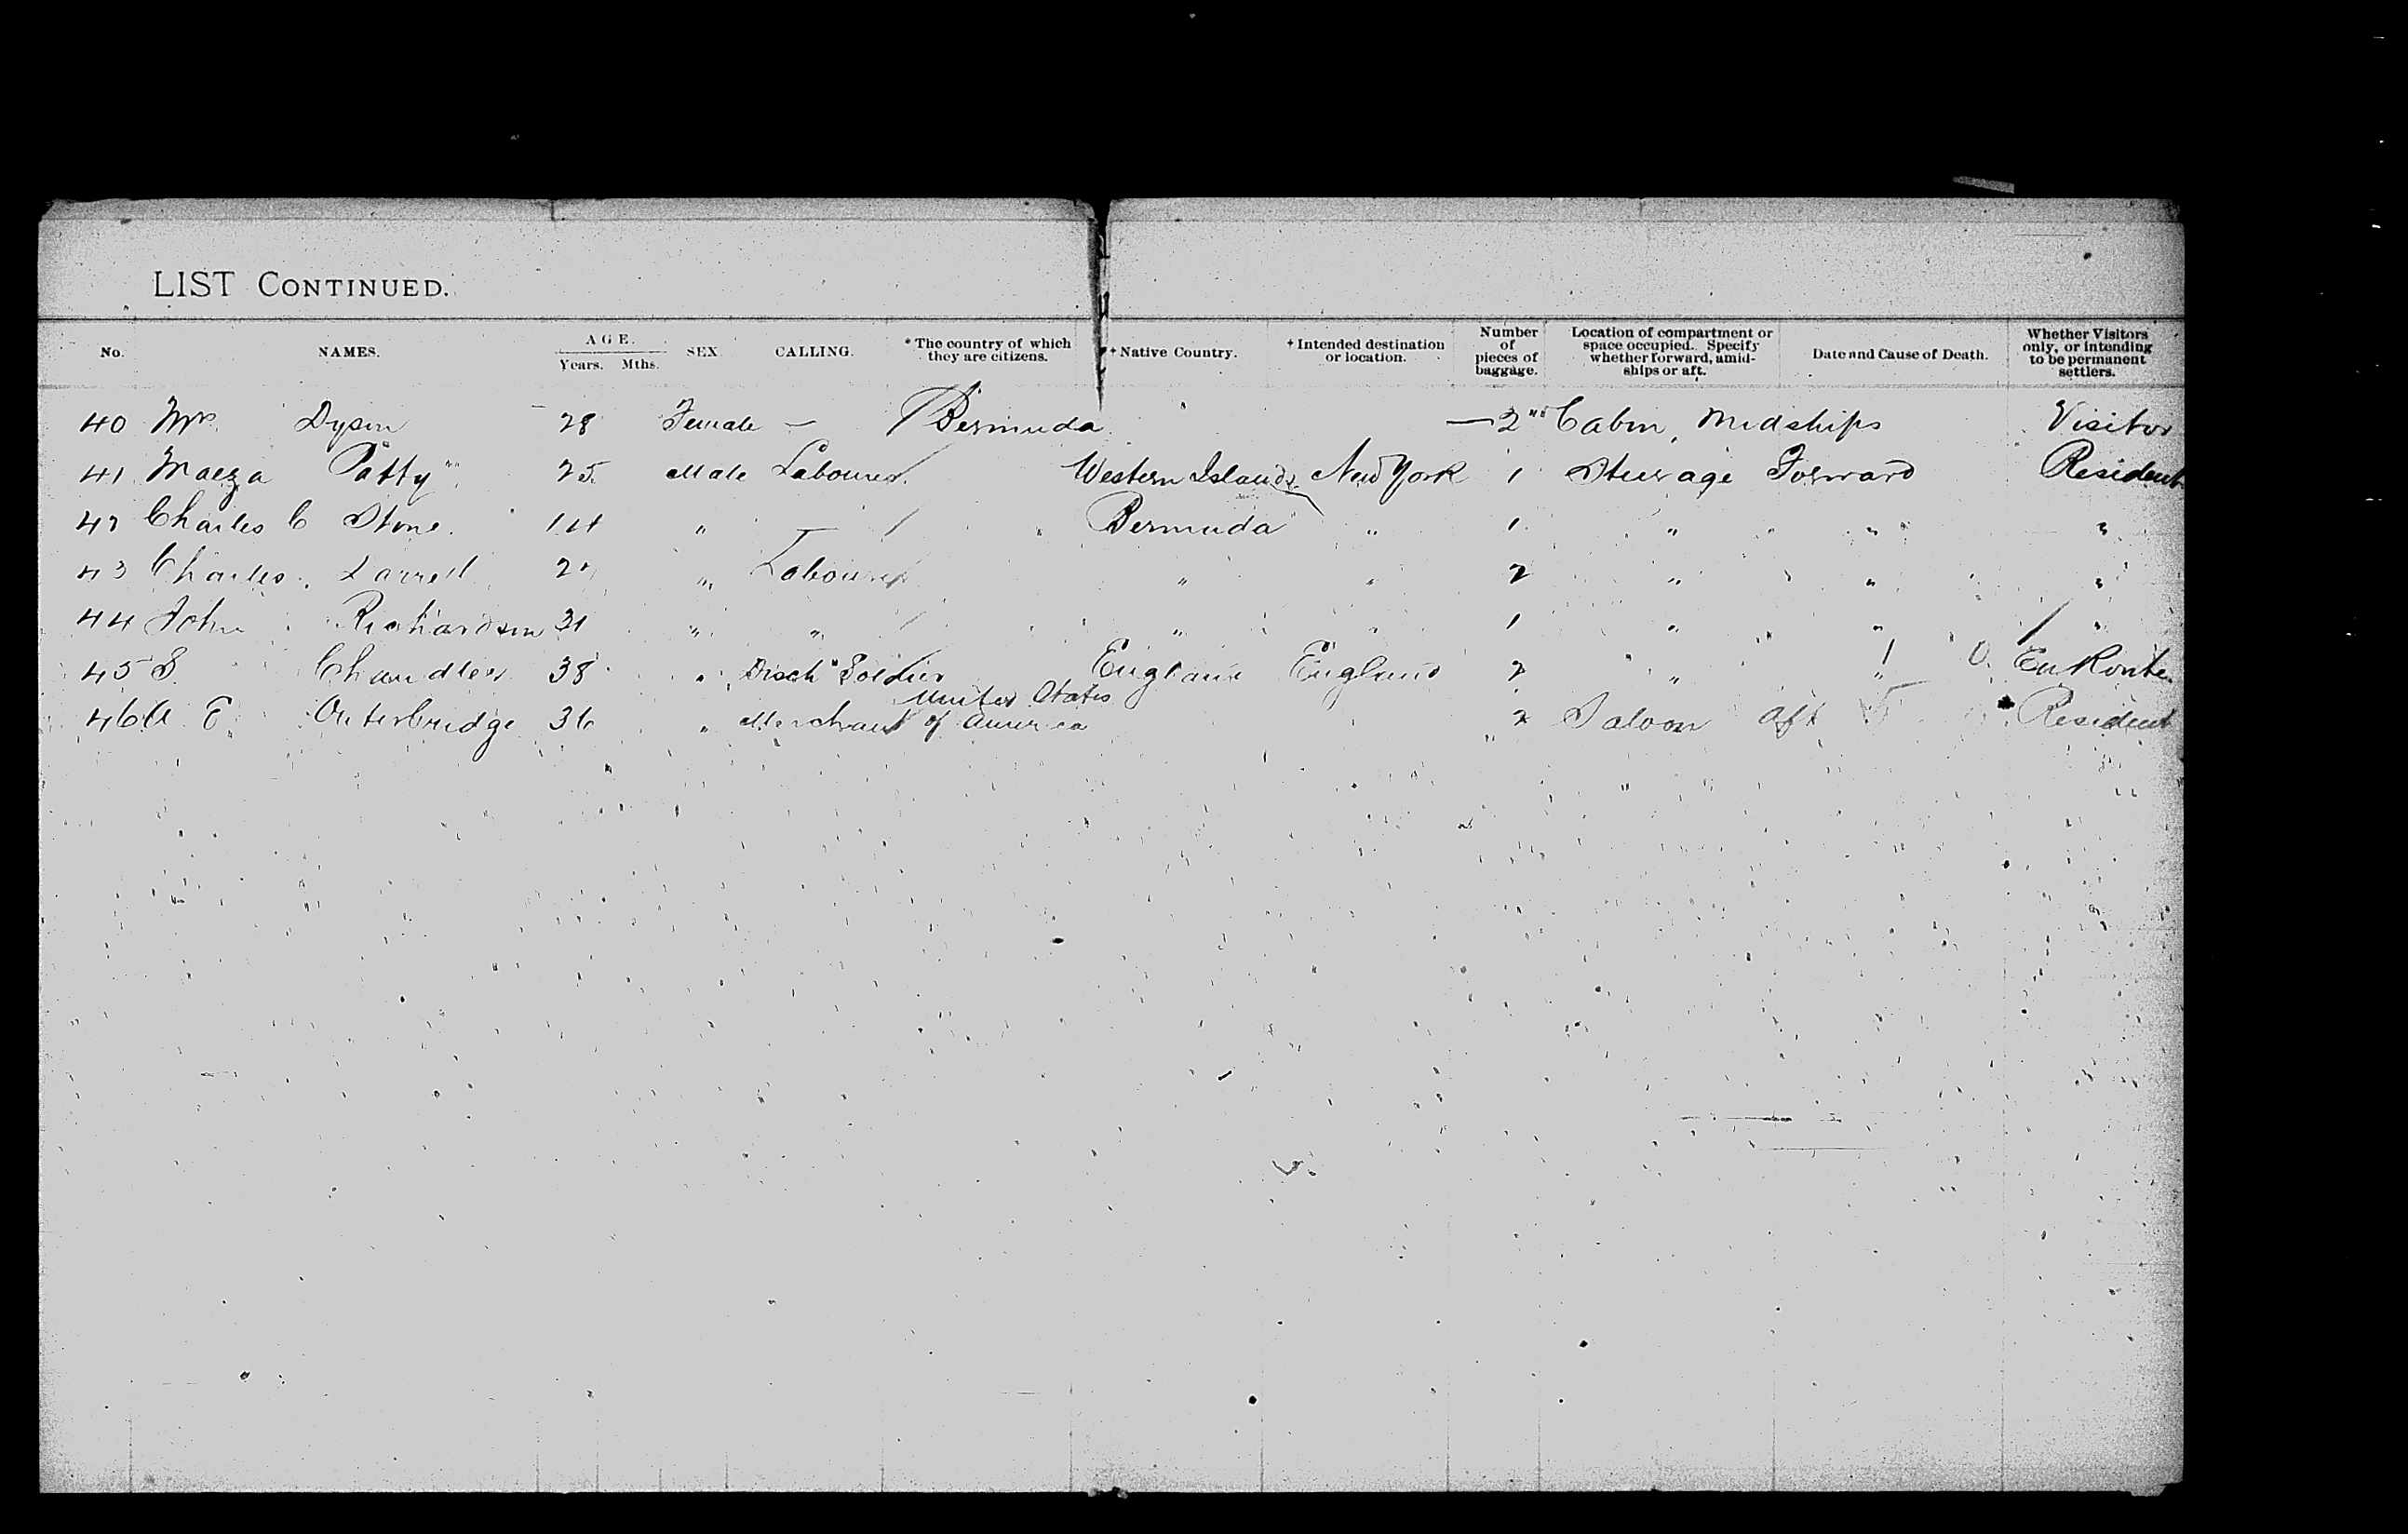 LIST CONTINUED.
No. NAMES. AGE. Years. Mths. SEX CALLING. * The country of which they are citizens. + Native Country. + Intended destination or location. Number of pieces of baggage. Location of compartment or space occupied. Specify whether forward, amidships or aft. Date and Cause of Death. Whether Visitors only, or intending to be permanent settlers.
40 Mrs. Dyson 28 Female — Bermuda — 2nd Cabin, Midships Visitor
41 Maeza Patty 25 Male Labourer Western Islands New York 1 Steerage Forward Resident
42 Charles C Stone. 14 " — Bermuda " 1 " " "
43 Charles Darrell " Labourer " " 2 " " "
44 John Richardson 31 " " " " 1 " " "
45 S Chandler 38 " Disch Soldier England England 2 " " En Route
46 A E Outerbridge 36 " Merchant United States of America 2 Saloon Aft Resident